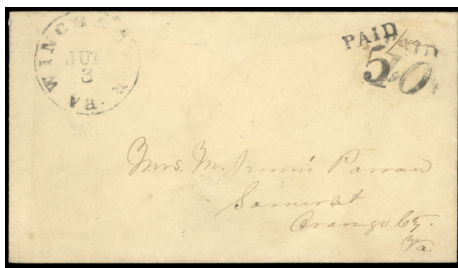 WINCHESTER
JUL
3
Va.
PAID
PAID
5
10
Mrs. M. Jennie
Somerset
Orange Co.
Va.